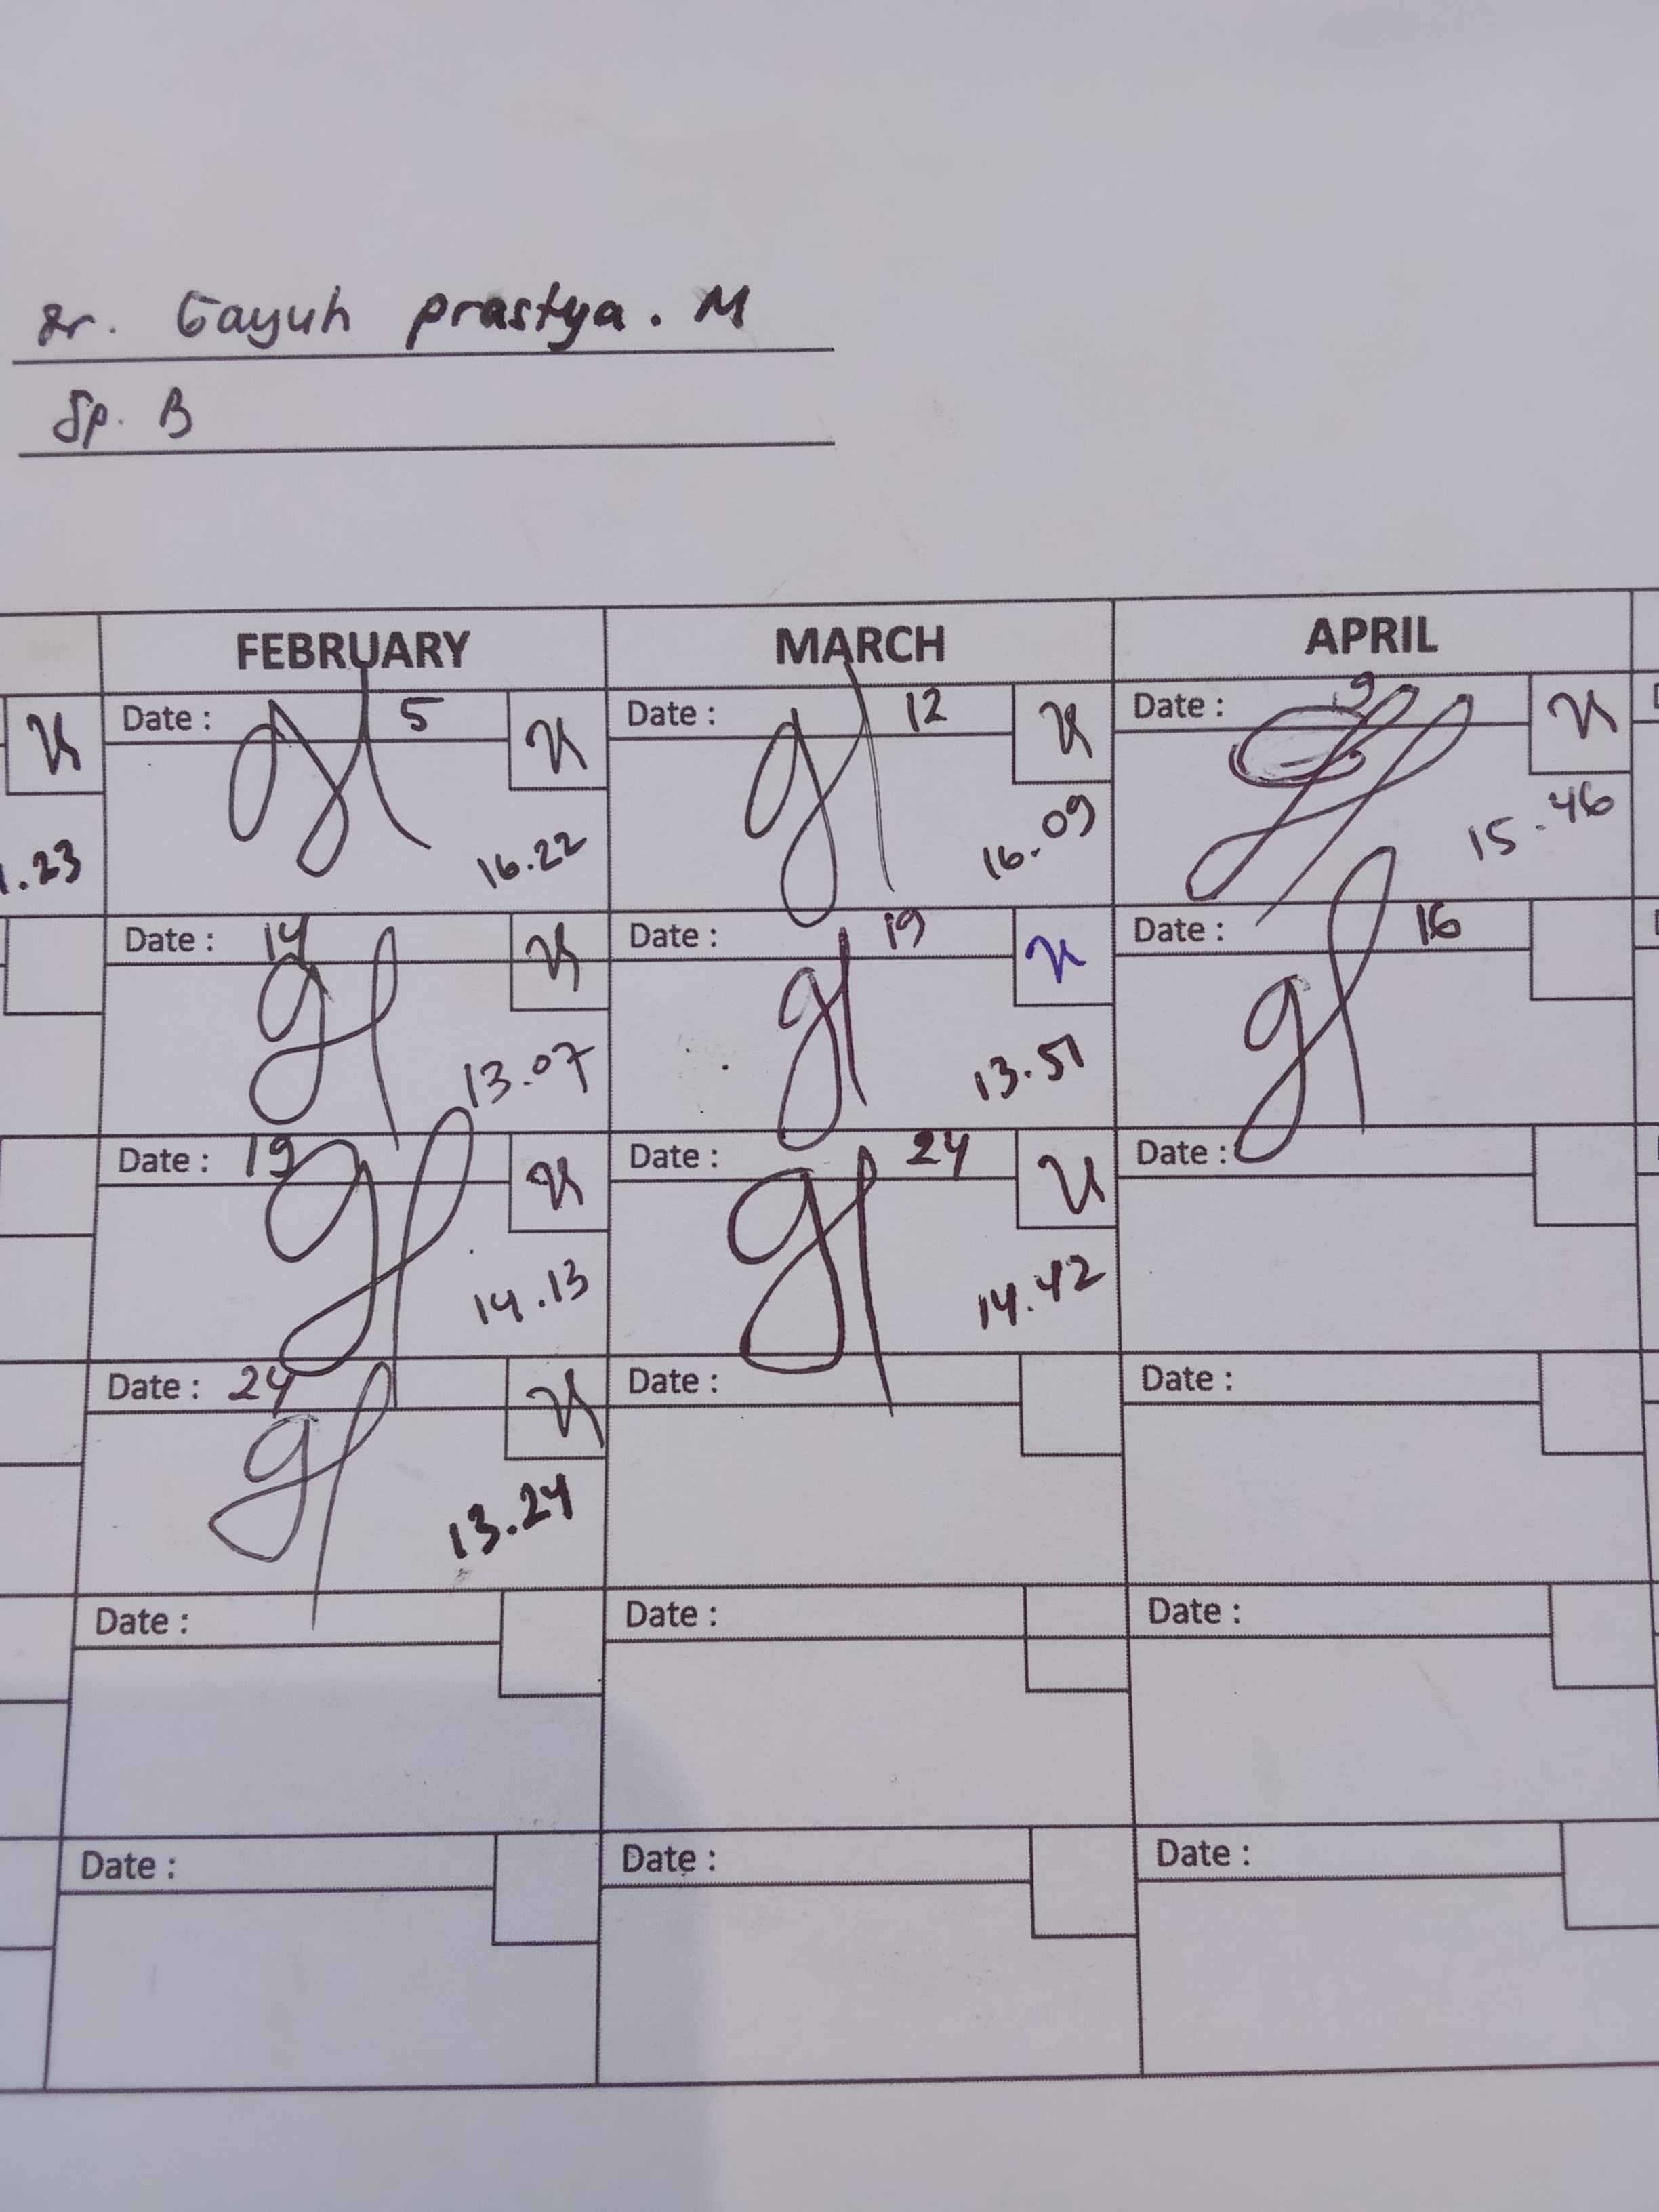 dr. Gayuh prastya. M
Sp. B
FEBRUARY MARCH APRIL
Date : 5 Date : 12 Date : 9
16.22 16.09 15.46
.23
Date : 14 Date : 19 Date : 16
13.07 13.51
Date : 19 Date : 24 Date :
14.13 14.42
Date : 24 Date : Date :
13.24
Date : Date : Date :
Date : Date : Date :